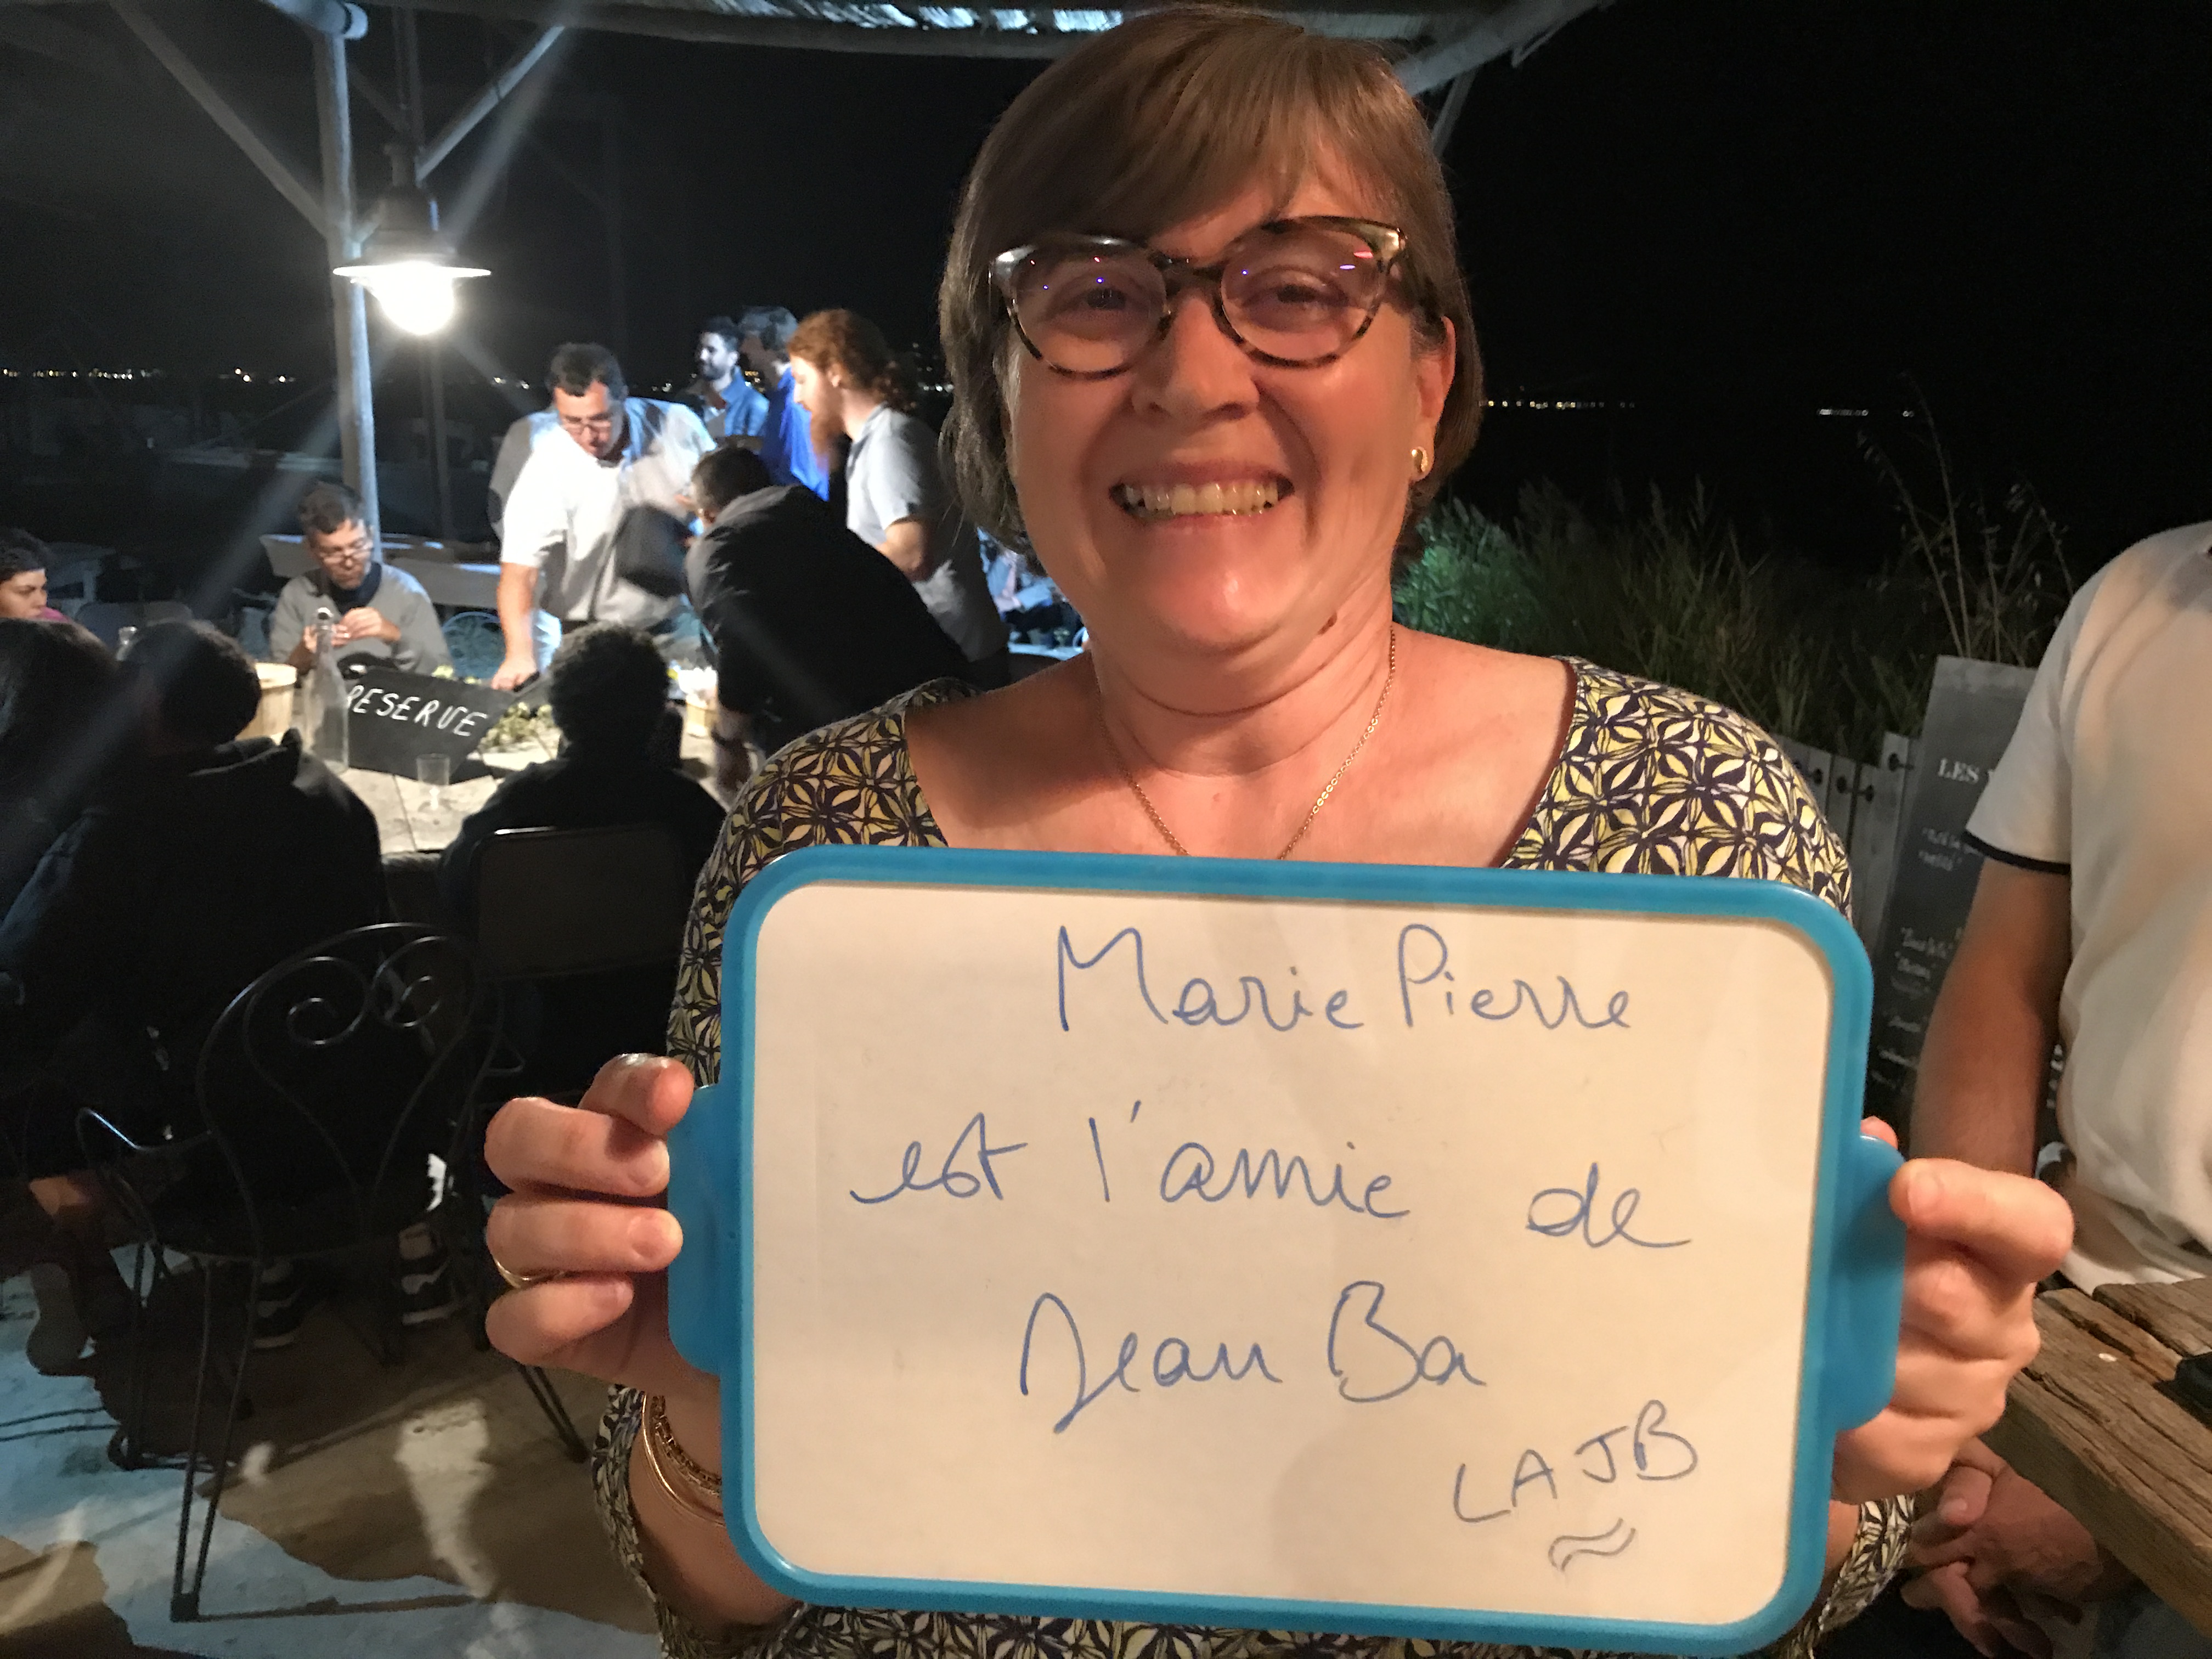 RESERVE
LES
Marie Pierre
est l'amie de
Jean Ba
LAJB